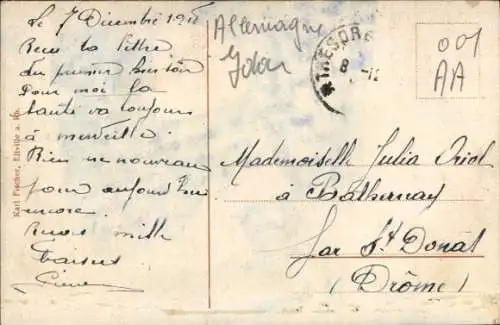 Le 7 Décembre 191
Reçu ta lettre
du premier
Pour moi la
santé va toujours
à merveille
Rien de nouveau
pour aujourd'hui
encore.
mille
Baisers
Allemagne
Idar
TRESOR
8
001
AA
Mademoiselle Julia Oriol
à Bathernay
par St Donat
(Drôme)
Karl Fischer, Eltville a. Rh.